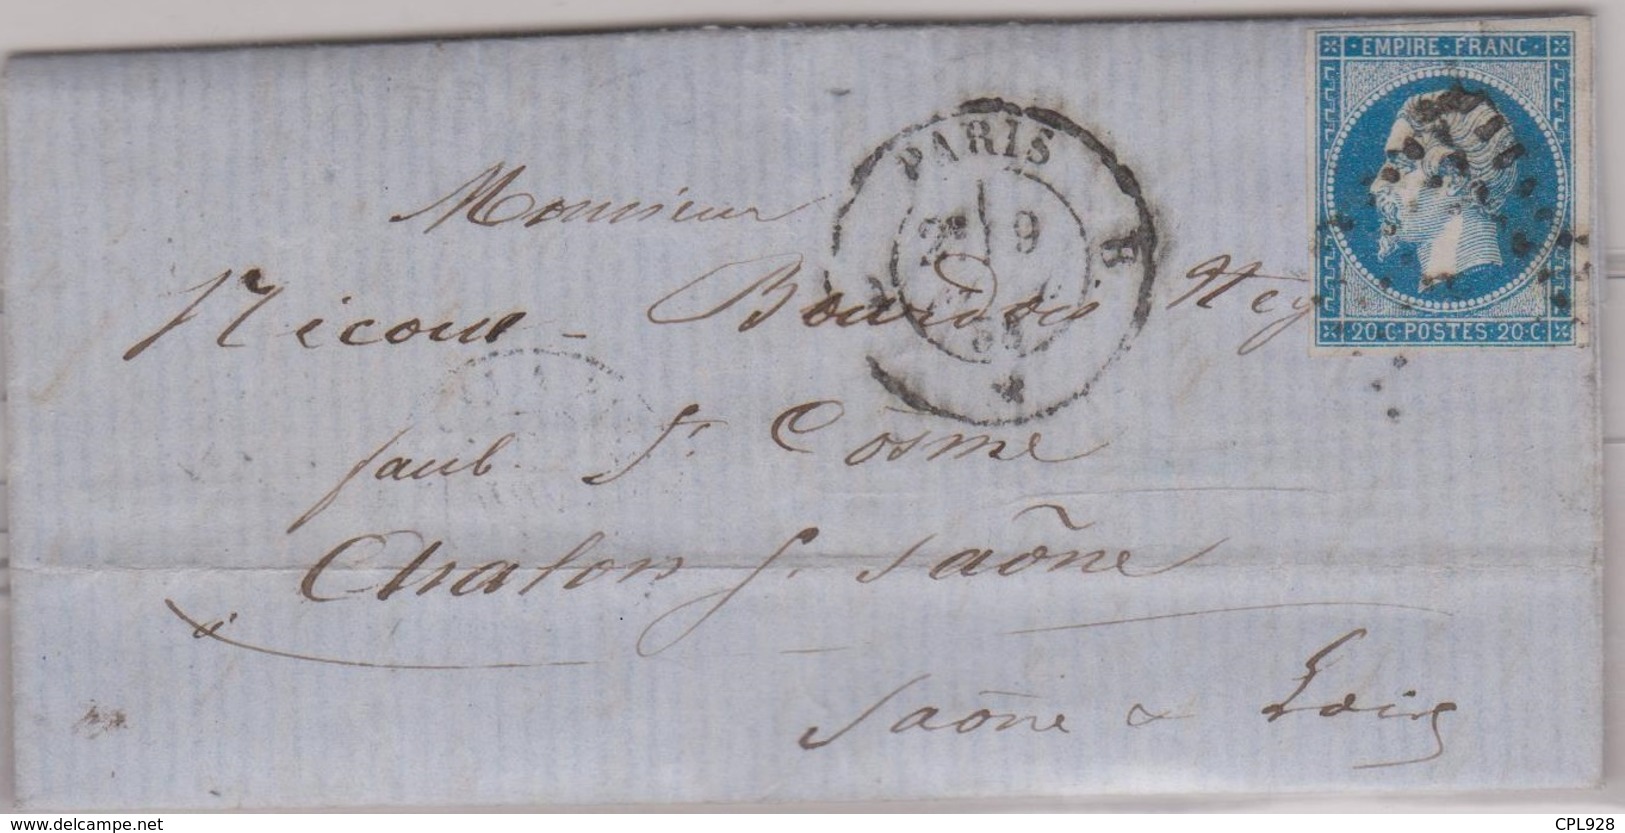 EMPIRE · FRANC
PARIS
B
2e 9
Monsieur
Bourdois Ney
faub. St. Cosme
Chalon s. Saône
à
Saône & Loire
20 C · POSTES · 20 C
www.delcampe.net
CPL928